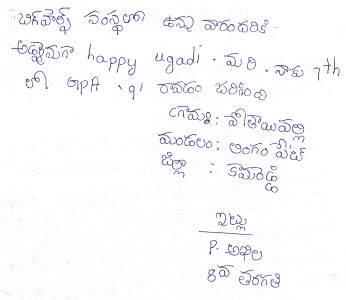 బిగ్‌హెల్ప్ సంస్థలో ఉన్న వారందరికి
అడ్వాన్సుగా happy ugadi . మరి . నాకు 7th
లో GPA . 9.1 రావడం జరిగింది
గ్రామం : పోతాయిపల్లి
మండలం : లింగం పేట్
జిల్లా : కామారెడ్డి
ఇట్లు
P. అఖిల
8వ తరగతి